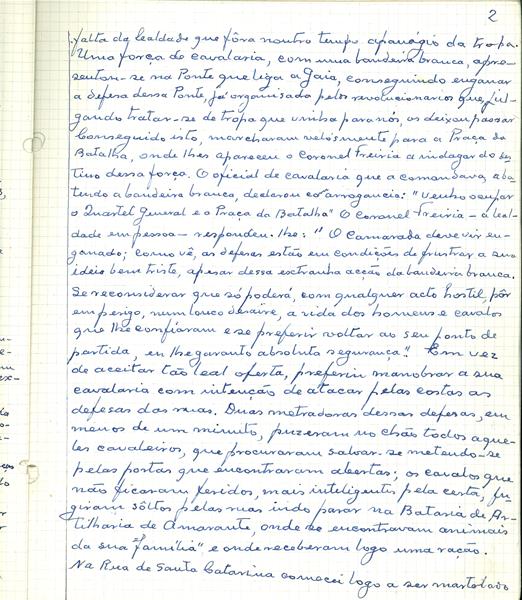 2
falta da lealdade que fôra noutro tempo apanágio da tropa.
Uma força de cavalaria, com uma bandeira branca, apre-
sentou-se na Ponte que liga a Gaia, conseguindo enganar
a defesa dessa Ponte, já organisada pelos revolucionarios que, jul-
gando tratar-se de tropa que vinha para nós, os deixou passar
Conseguido isto, marcharam velósmente para a Praça da
Batalha, onde lhes apareceu o Coronel Freiria a indagar do des-
tino dessa força. O oficial de cavalaria que a comandava, aba-
tendo a bandeira branca, declarou com arrogancia: "Venho ocupar
o Quartel General e a Praça da Batalha" O Coronel Freiria - a leal-
dade em pessoa - respondeu-lhe: "O Camarada deve vir en-
ganado; como vê, as defesas estão em condições de frustrar a sua
idéia bem triste, apesar dessa estranha acção da bandeira branca.
Se reconsiderar que só poderá, com qualquer acto hostil, pôr
em perigo, num louco desaire, a vida dos homens e cavalos
que lhe confiaram e se preferir voltar ao seu ponto de
partida, eu lhe garanto absoluta segurança". Em vez
de aceitar tão leal oferta, preferiu manobrar a sua
cavalaria com intenção de atacar pelas costas as
defesas das ruas. Duas metradoras dessas defesas, em
menos de um minuto, puzeram no chão todos aque-
les cavaleiros, que procuraram salvar-se metendo-se
pelas portas que encontraram abertas; os cavalos que
não ficaram feridos, mais inteligentes pela certa, fu-
giram sôltos pelas ruas indo parar na Bataria de Ar-
tilharia de Amarante, onde se encontravam animais
da sua "família" e onde receberam logo uma ração.
Na Rua de Santa Catarina comecei logo a ser martelado